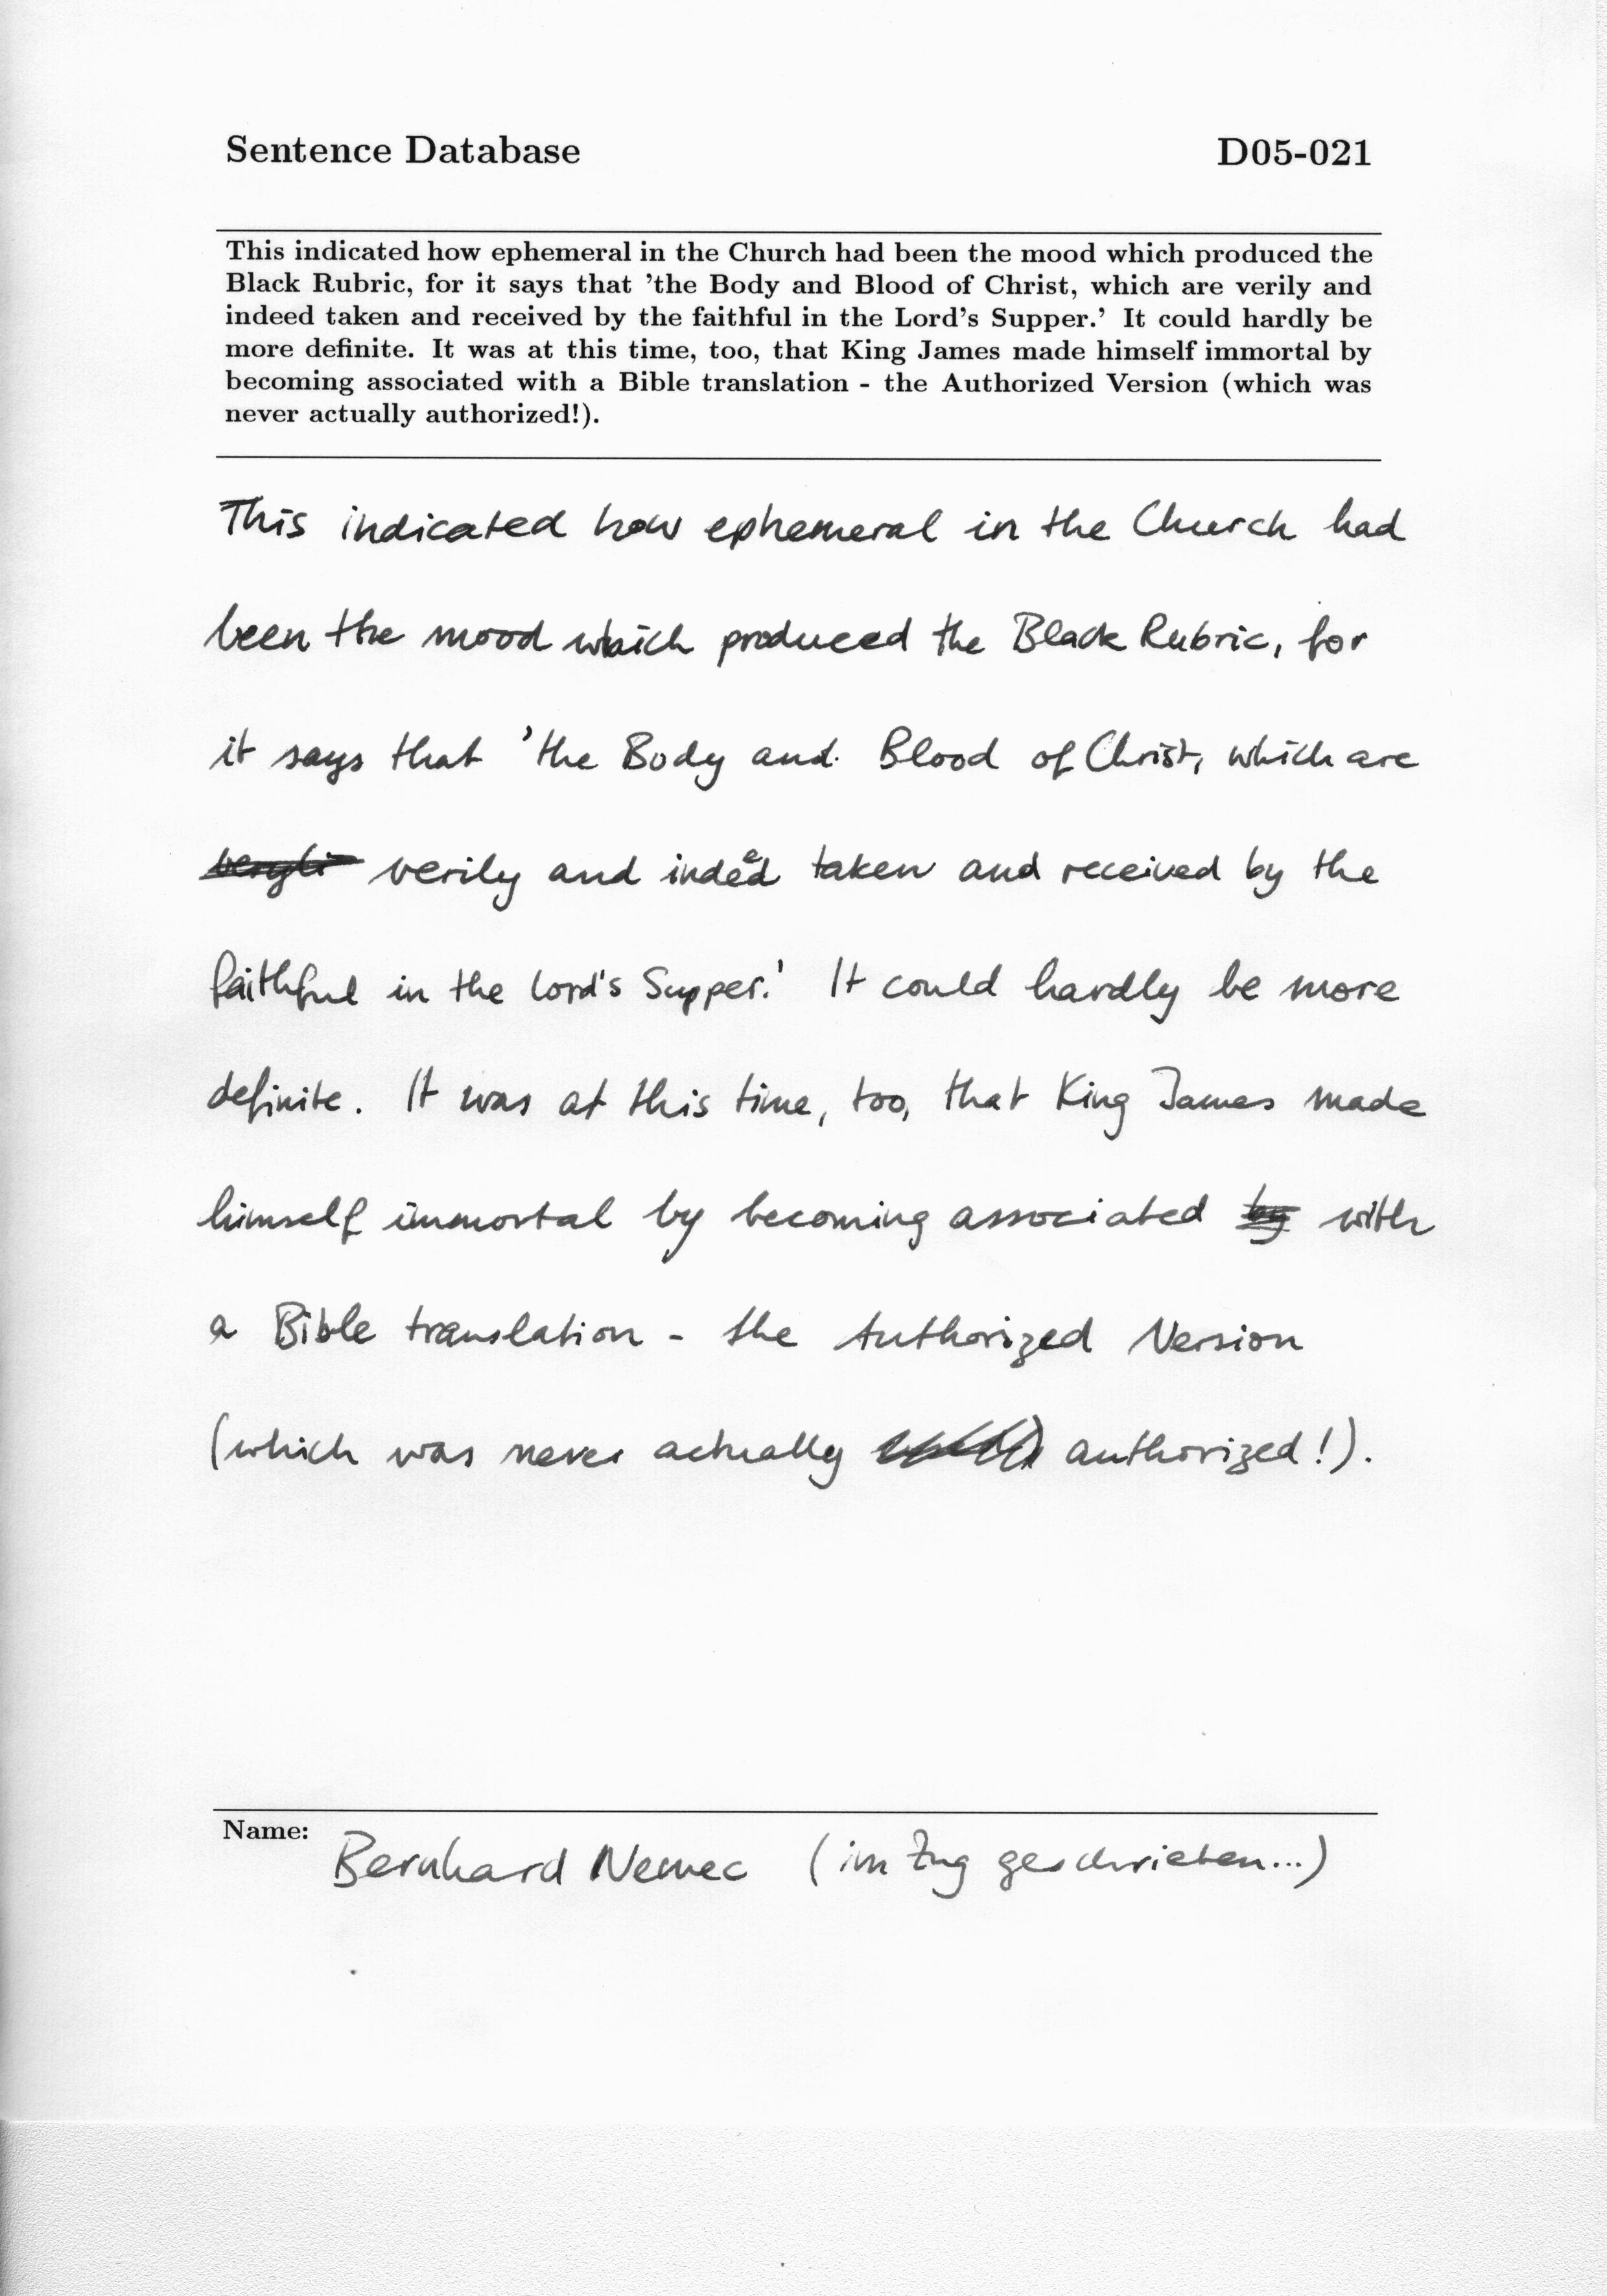 Sentence Database D05-021
This indicated how ephemeral in the Church had been the mood which produced the
Black Rubric, for it says that 'the Body and Blood of Christ, which are verily and
indeed taken and received by the faithful in the Lord's Supper.' It could hardly be
more definite. It was at this time, too, that King James made himself immortal by
becoming associated with a Bible translation - the Authorized Version (which was
never actually authorized!).
This indicated how ephemeral in the Church had
been the mood which produced the Black Rubric, for
it says that 'the Body and Blood of Christ, which are
verily and indeed taken and received by the
faithful in the Lord's Supper.' It could hardly be more
definite. It was at this time, too, that King James made
himself immortal by becoming associated by with
a Bible translation - the Authorized Version
(which was never actually authorized!).
Name: Bernhard Nemec (im Zug geschrieben...)